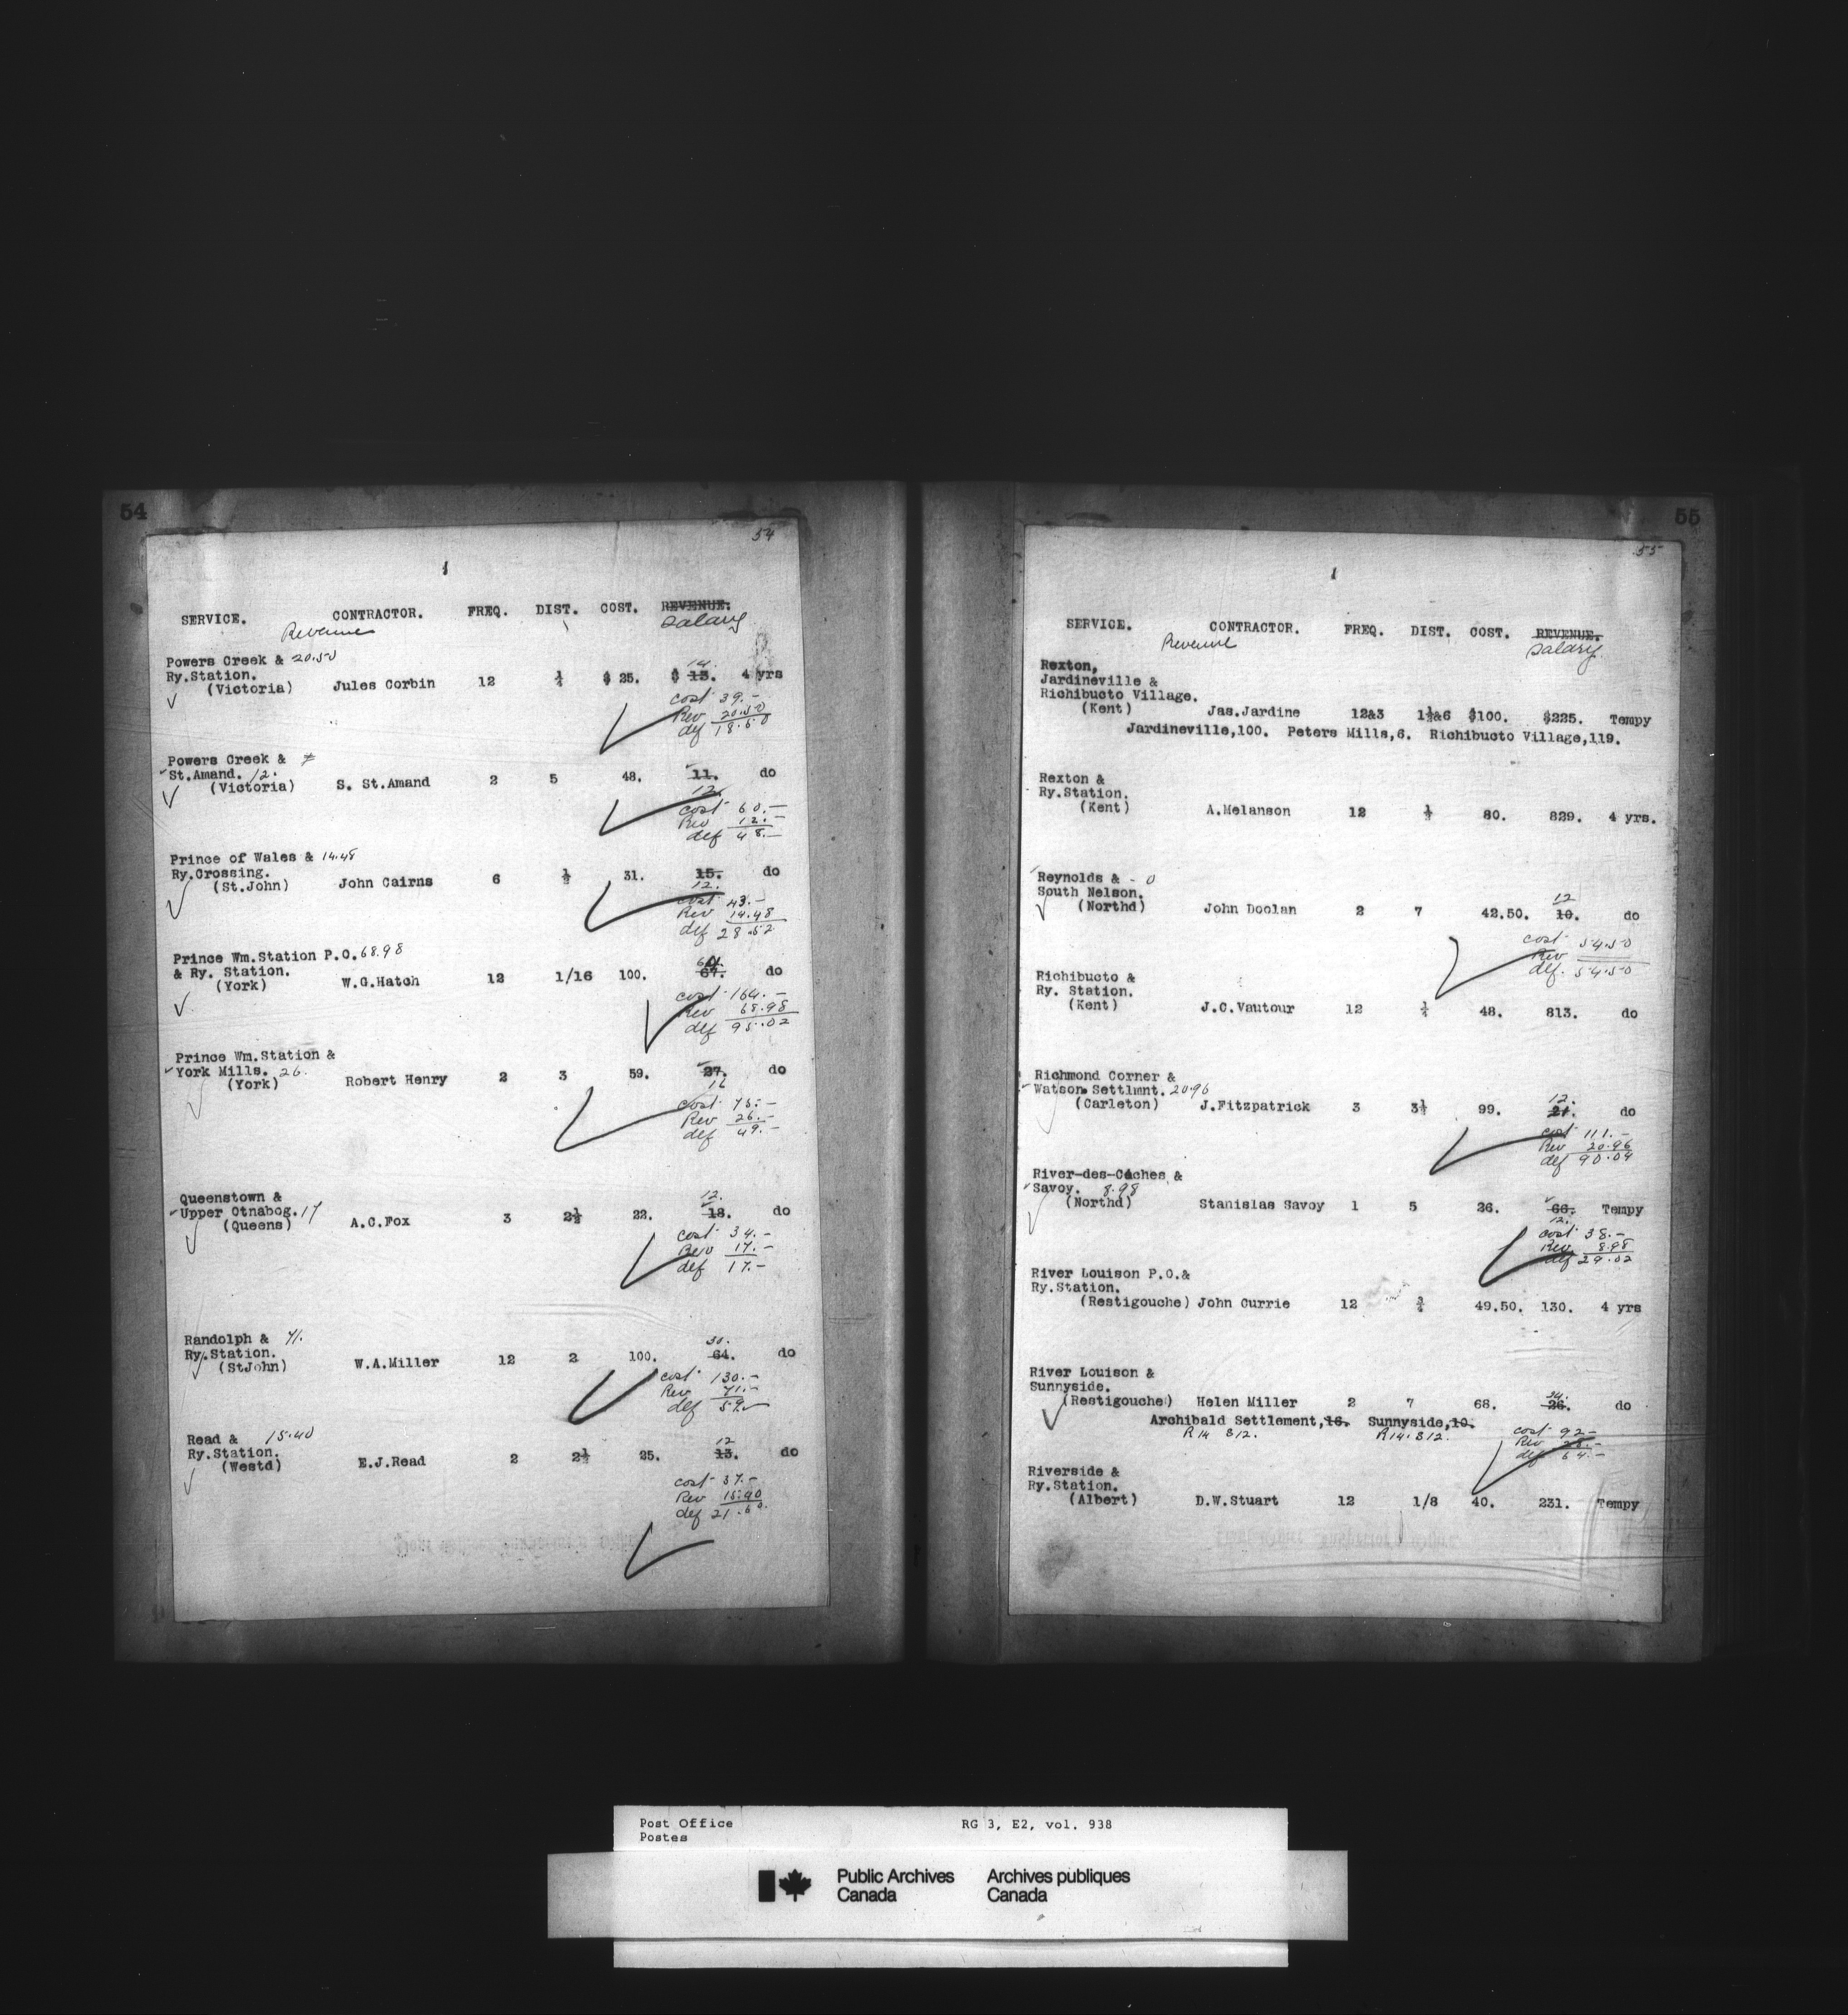 54
54
SERVICE. CONTRACTOR. FREQ. DIST. COST. REVENUE.
Revenue Salary
Powers Creek & 20.50
Ry.Station. 14.
(Victoria) Jules Corbin 12 ¼ $ 25. $ 13. 4 yrs
cost 39.-
Rev 20.50
def 18.50
Powers Creek &
St.Amand. 12.
(Victoria) S. St.Amand 2 5 48. 11. do
12.
cost 60.-
Rev 12.-
def 48.-
Prince of Wales & 14.48
Ry.Crossing.
(St.John) John Cairns 6 ½ 31. 15. do
12.
cost 43.-
Rev 14.48
def 28.52
Prince Wm.Station P.O. 68.98
& Ry. Station. 64.
(York) W.G.Hatch 12 1/16 100. 67. do
cost 164.-
Rev 68.98
def 95.02
Prince Wm.Station &
York Mills. 26.
(York) Robert Henry 2 3 59. 27. do
16
cost 75.-
Rev 26.-
def 49.-
Queenstown &
Upper Otnabog. 17 12.
(Queens) A.C.Fox 3 2½ 22. 18. do
cost 34.-
Rev 17.-
def 17.-
Randolph & 71.
Ry.Station. 30.
(StJohn) W.A.Miller 12 2 100. 64. do
cost 130.-
Rev 71.-
def 59.
Read & 15.40
Ry.Station. 12
(Westd) E.J.Read 2 2½ 25. 13. do
cost 37.-
Rev 15.40
def 21.60
55
55
SERVICE. CONTRACTOR. FREQ. DIST. COST. REVENUE.
Revenue Salary.
Rexton,
Jardineville &
Richibucto Village.
(Kent) Jas.Jardine 12&3 1½&6 $100. $225. Tempy
Jardineville,100. Peters Mills,6. Richibucto Village,119.
Rexton &
Ry.Station.
(Kent) A.Melanson 12 80. 829. 4 yrs.
Reynolds & - 0
South Nelson. 12
(Northd) John Doolan 2 7 42.50. 10. do
cost 54.50
Rev
def. 54.50
Richibucto &
Ry. Station.
(Kent) J.C.Vautour 12 ¼ 48. 813. do
Richmond Corner &
Watson Settlmnt. 20.96 12.
(Carleton) J.Fitzpatrick 3 3½ 99. 21. do
cost 111.-
Rev 20.96
def 90.04
River-des-Caches &
Savoy. 8.98
(Northd) Stanislas Savoy 1 5 26. 66. Tempy
12.
cost 38.-
Rev 8.98
def 29.02
River Louison P.O.&
Ry.Station.
(Restigouche) John Currie 12 ¾ 49.50. 130. 4 yrs
River Louison &
Sunnyside. 24.
(Restigouche) Helen Miller 2 7 68. 26. do
Archibald Settlement,16. Sunnyside,10.
R14 S12. R14. S12.
cost 92-
Rev 28.-
def 64.-
Riverside &
Ry.Station.
(Albert) D.W.Stuart 12 1/8 40. 231. Tempy
Post Office RG 3, E2, vol. 938
Postes
Public Archives Archives publiques
Canada Canada